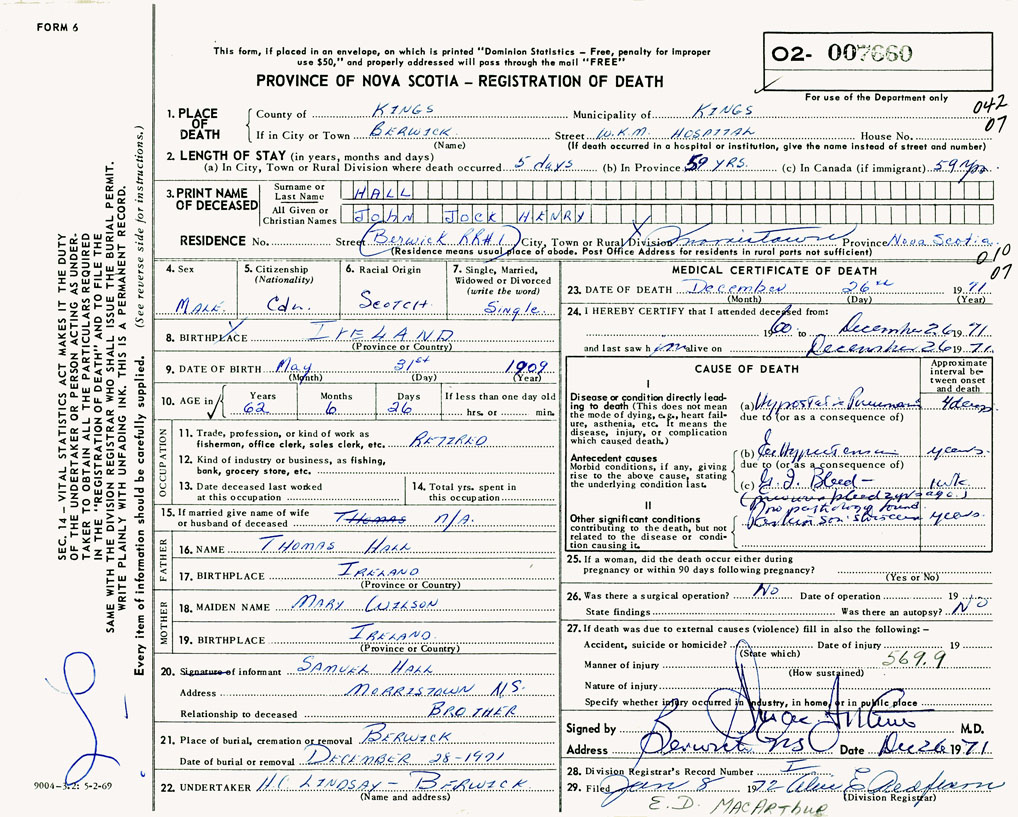 FORM 6
This form, if placed in an envelope, on which is printed "Dominion Statistics – Free, penalty for improper
use $50," and properly addressed will pass through the mail "FREE"
PROVINCE OF NOVA SCOTIA – REGISTRATION OF DEATH
O2- 007660
For use of the Department only
042
07
1. PLACE OF DEATH
County of KINGS Municipality of KINGS
If in City or Town BERWICK Street W.K.M. HOSPITAL House No.
(Name) (If death occurred in a hospital or institution, give the name instead of street and number)
2. LENGTH OF STAY (in years, months and days)
(a) In City, Town or Rural Division where death occurred 5 days (b) In Province 59 YRS. (c) In Canada (if immigrant) 59 Yrs.
3. PRINT NAME OF DECEASED
Surname or Last Name HALL
All Given or Christian Names JOHN JOCK HENRY
RESIDENCE No. Street Berwick RR#1 City, Town or Rural Division Morristown Province Nova Scotia
(Residence means usual place of abode. Post Office Address for residents in rural parts not sufficient)
010
07
4. Sex
MALE
5. Citizenship
(Nationality)
Cdn.
6. Racial Origin
SCOTCH
7. Single, Married,
Widowed or Divorced
(write the word)
Single
8. BIRTHPLACE IRELAND
(Province or Country)
9. DATE OF BIRTH May 31st 1909
(Month) (Day) (Year)
10. AGE in Years Months Days If less than one day old
62 6 26 hrs. or min.
OCCUPATION
11. Trade, profession, or kind of work as
fisherman, office clerk, sales clerk, etc. RETIRED
12. Kind of industry or business, as fishing,
bank, grocery store, etc.
13. Date deceased last worked
at this occupation
14. Total yrs. spent in
this occupation
15. If married give name of wife
or husband of deceased Thomas N/A.
FATHER
16. NAME THOMAS HALL
17. BIRTHPLACE IRELAND
(Province or Country)
MOTHER
18. MAIDEN NAME MARY WILSON
19. BIRTHPLACE IRELAND
(Province or Country)
20. Signature of informant SAMUEL HALL
Address MORRISTOWN N.S.
Relationship to deceased BROTHER
21. Place of burial, cremation or removal BERWICK
Date of burial or removal DECEMBER 28-1971
22. UNDERTAKER H.C. LINDSAY – BERWICK
(Name and address)
MEDICAL CERTIFICATE OF DEATH
23. DATE OF DEATH December 26th 1971
(Month) (Day) (Year)
24. I HEREBY CERTIFY that I attended deceased from:
1960 to December 26 1971
and last saw him alive on December 26 1971.
CAUSE OF DEATH
Approximate
interval be-
tween onset
and death
I
Disease or condition directly lead-
ing to death (This does not mean
the mode of dying, e.g., heart fail-
ure, asthenia, etc. It means the
disease, injury, or complication
which caused death.)
(a) Hypostatic Pneumonia 4 days
due to (or as a consequence of)
Antecedent causes
Morbid conditions, if any, giving
rise to the above cause, stating
the underlying condition last.
(b) Hypertension years.
due to (or as a consequence of)
(c) G.I. Bleed – 1 wk
(previous bleed 2 yrs ago.)
no pathology found
II
Other significant conditions
contributing to the death, but not
related to the disease or condi-
tion causing it.
Parkinson's disease years.
25. If a woman, did the death occur either during
pregnancy or within 90 days following pregnancy?
(Yes or No)
26. Was there a surgical operation? No Date of operation 19
State findings Was there an autopsy? No
27. If death was due to external causes (violence) fill in also the following: –
Accident, suicide or homicide? Date of injury 19
(State which)
569.9
Manner of injury
(How sustained)
Nature of injury
Specify whether injury occurred in industry, in home, or in public place
Signed by M.D.
Address Berwick NS Date Dec 26 1971
28. Division Registrar's Record Number
29. Filed Jan 8 1972
(Division Registrar)
E. D. MACARTHUR
SEC. 14 – VITAL STATISTICS ACT MAKES IT THE DUTY
OF THE UNDERTAKER OR PERSON ACTING AS UNDER-
TAKER TO OBTAIN ALL THE PARTICULARS REQUIRED
IN THE "REGISTRATION OF DEATH" AND TO FILE THE
SAME WITH THE DIVISION REGISTRAR WHO SHALL ISSUE THE BURIAL PERMIT.
WRITE PLAINLY WITH UNFADING INK. THIS IS A PERMANENT RECORD.
Every item of information should be carefully supplied. (See reverse side for instructions.)